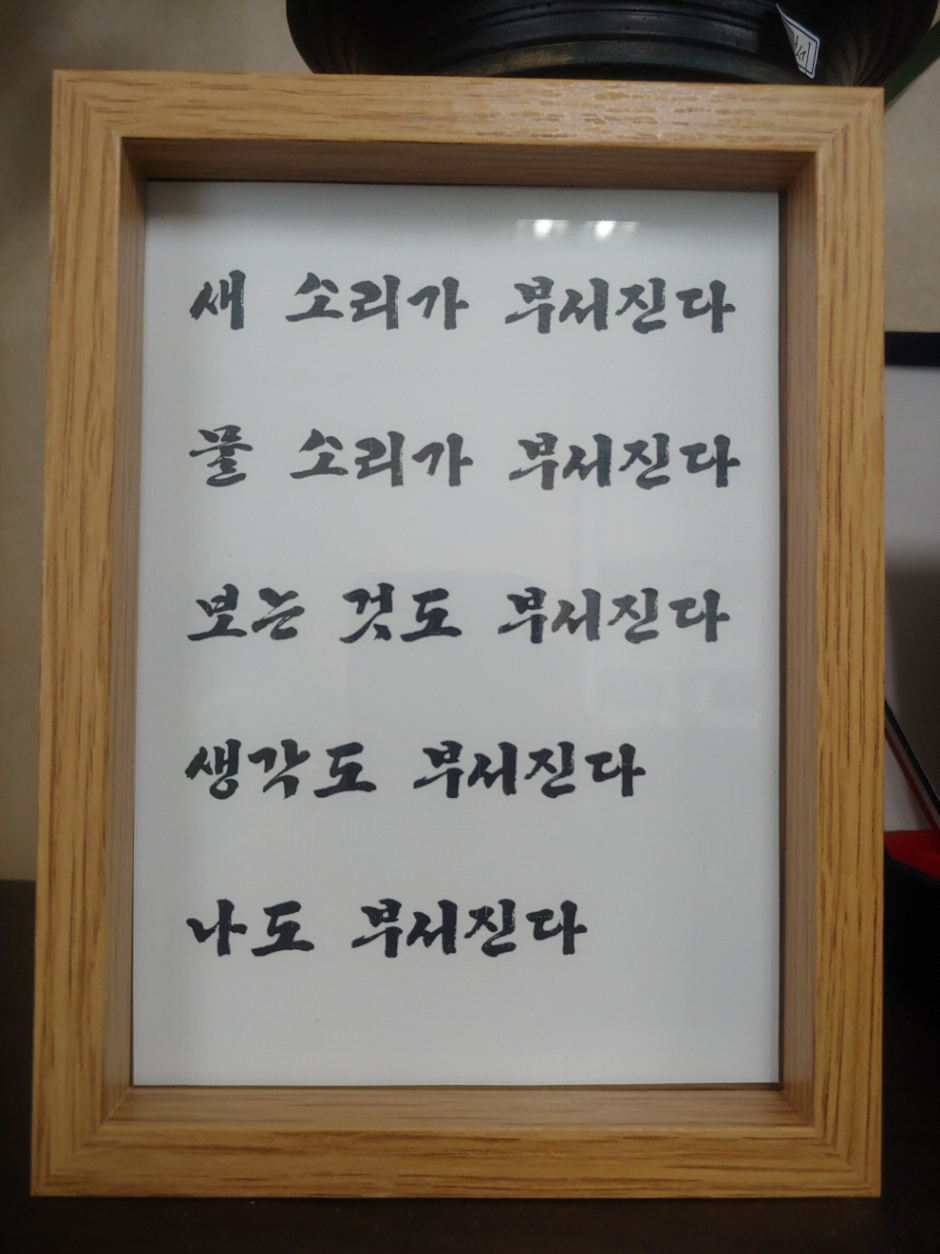 새 소리가 부서진다
물 소리가 부서진다
보는 것도 부서진다
생각도 부서진다
나도 부서진다